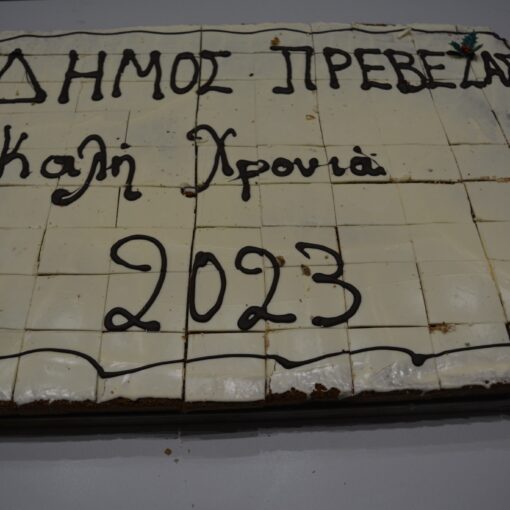 ΔΗΜΟΣ ΠΡΕΒΕΖΑΣ
Καλή Χρονιά
2023